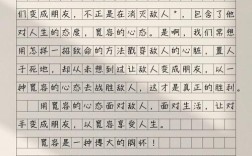 们变成朋友，不正是在消灭敌人”，包含了他
对人生的态度，宽容的心态。是啊，我们常想
用怎样一招致命的方法戳穿敌人的心脏，置人
于死地，却从未想到过让敌人变成朋友，以一
种宽容的心态去战胜敌人，这才是真正的胜利。
用宽容的心态面对敌人，面对生活，让对
手变成朋友，以宽容享受人生。
宽容是一种博大的胸怀！